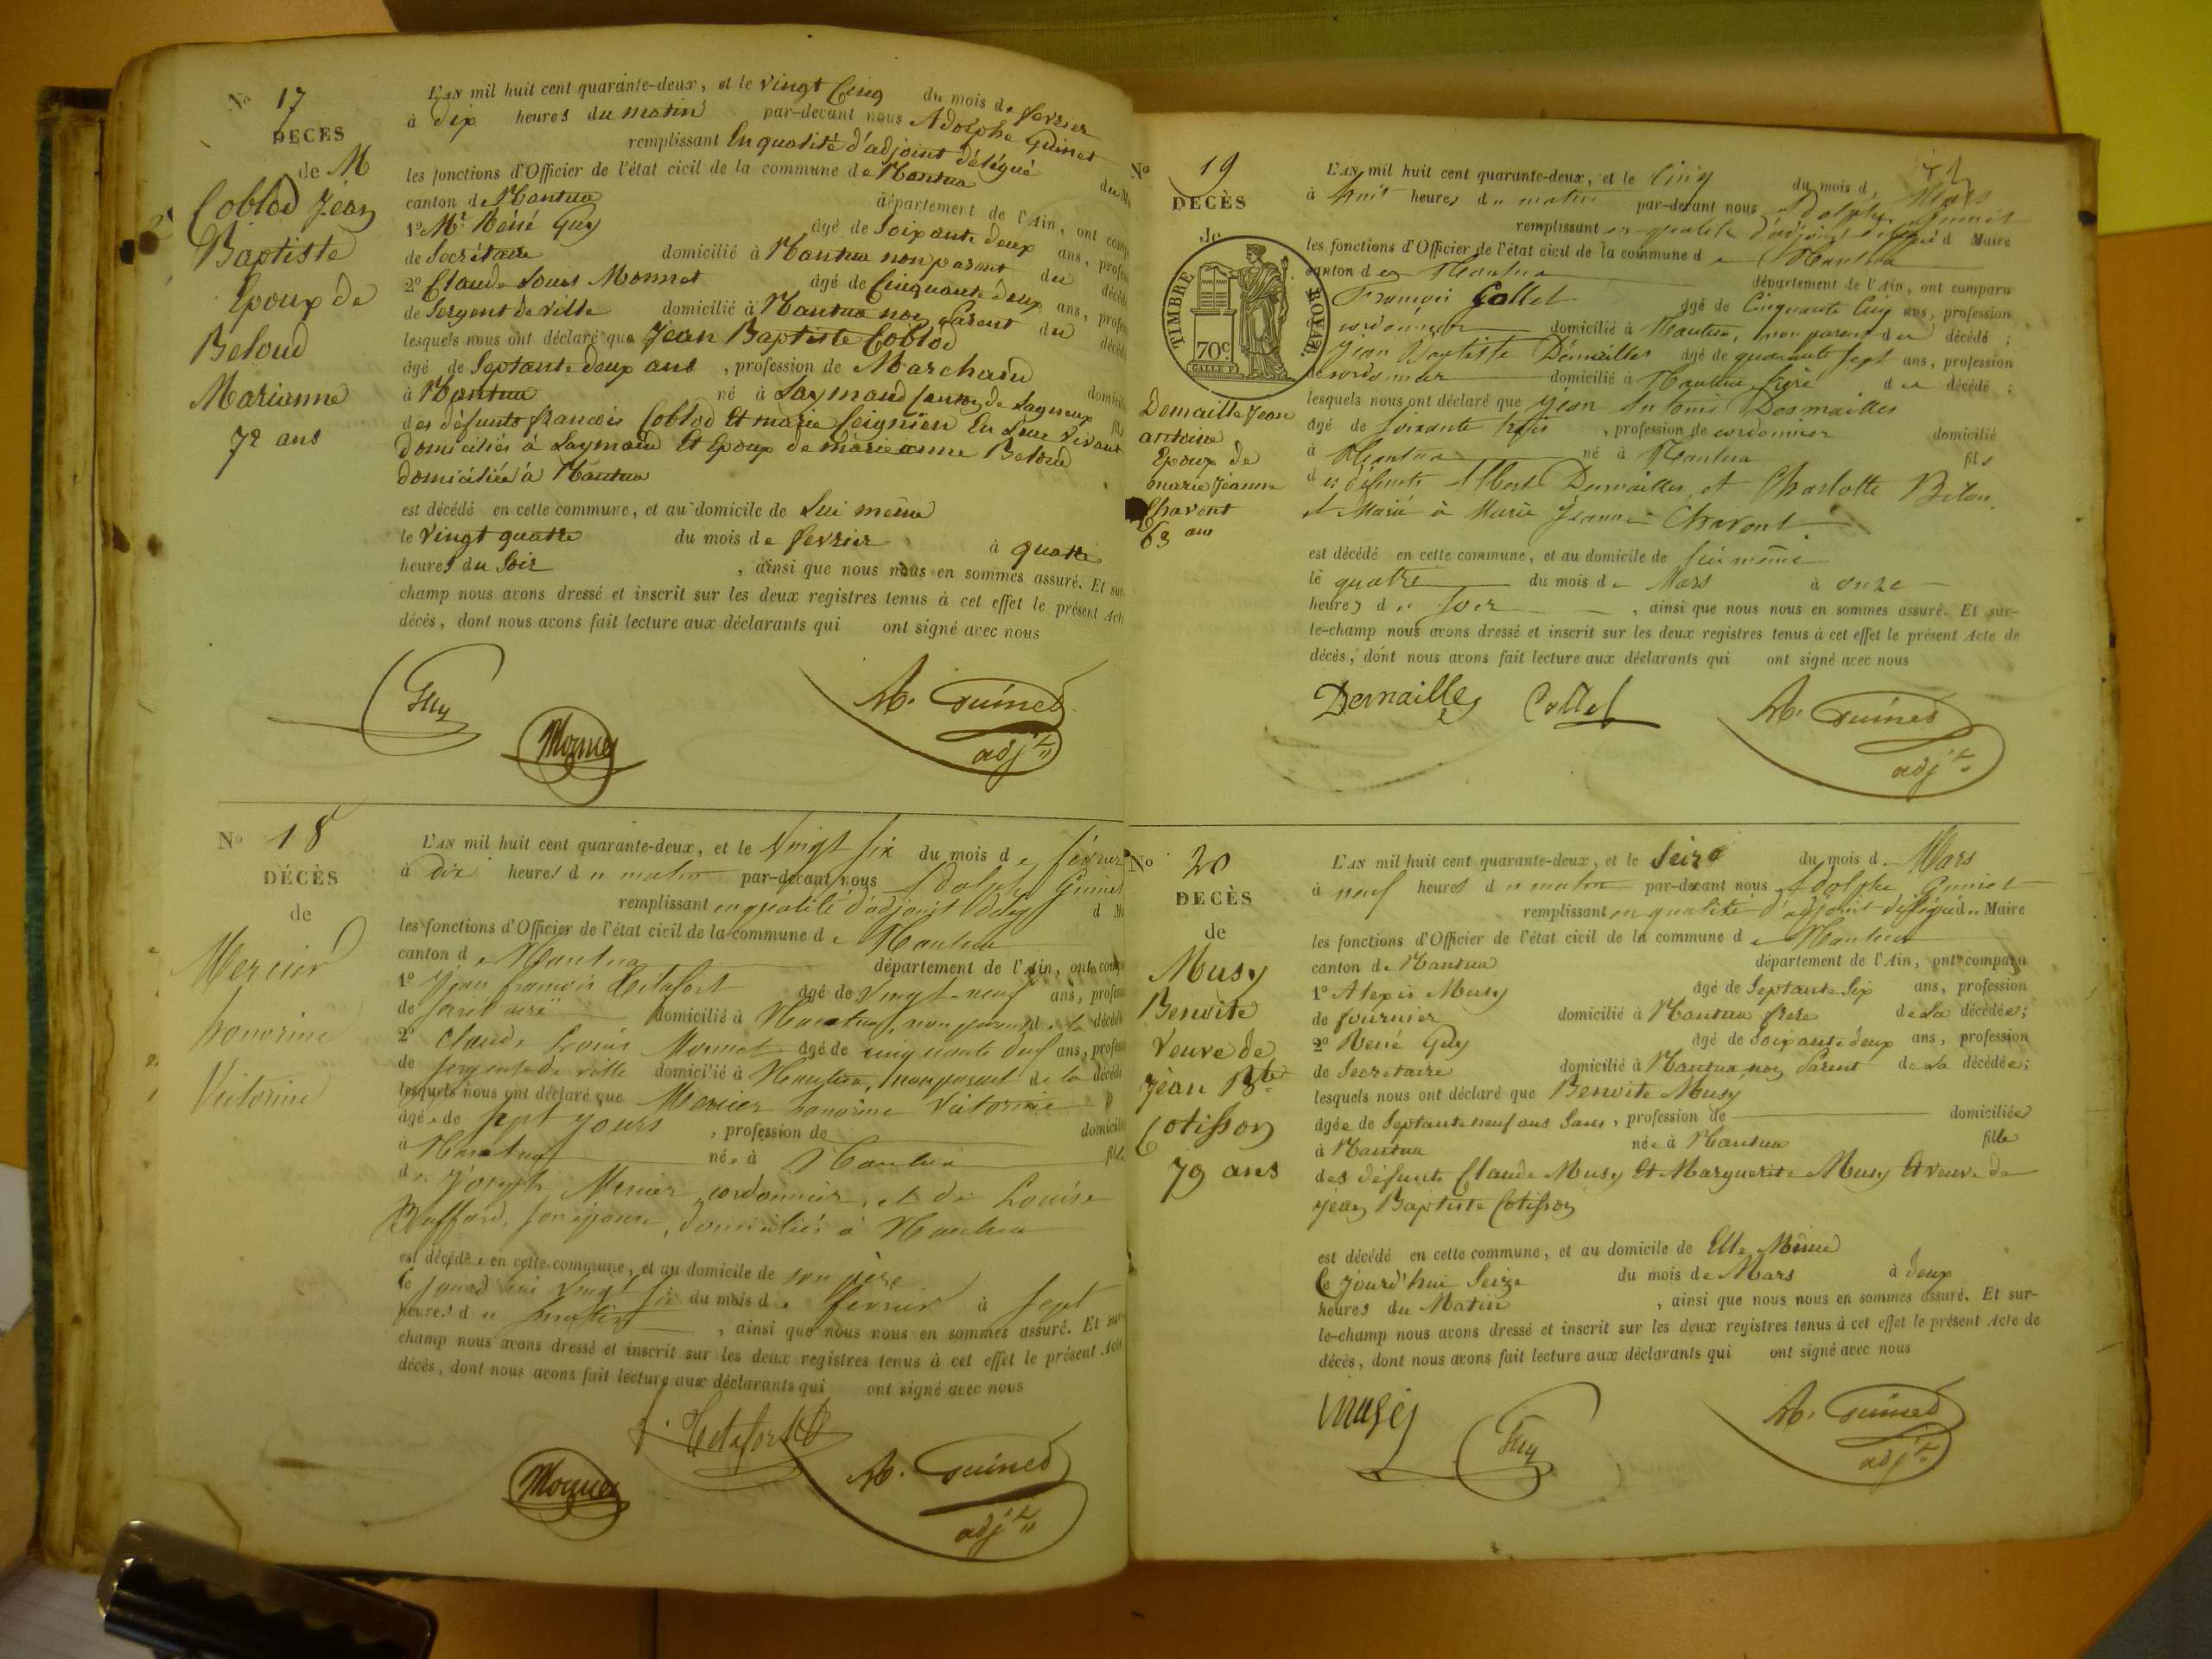 No 17
DECES
de M
Coblod Jean
Baptiste
Epoux de
Beloud
Marianne
72 ans
L'AN mil huit cent quarante-deux, et le vingt Cinq du mois de fevrier
à dix heures du matin par-devant nous Adolphe Guinet
remplissant En qualité d'adjoint délégué du M
les fonctions d'Officier de l'état civil de la commune de Nantua
canton de Nantua département de l'Ain, ont comp
1º Mr Réné Guy âgé de Soixante deux ans, profes
de Secrétaire domicilié à Nantua non parent du décéd
2º Claude Louis Monnet âgé de Cinquante deux ans, profes
de Sergent de ville domicilié à Nantua non Parent du décéd
lesquels nous ont déclaré que Jean Baptiste Coblod
âgé de Septante deux ans, profession de Marchand domicilié
à Nantua né à
des défunts francois Coblod Et marie Seignion En Leur vivant
domiciliés à Et Epoux de marie anne Beloud
domiciliée à Nantua
est décédé en cette commune, et au domicile de Lui même
le vingt quatre du mois de fevrier à quatre
heures du Soir, ainsi que nous nous en sommes assuré. Et sur
champ nous avons dressé et inscrit sur les deux registres tenus à cet effet le présent Acte
décès, dont nous avons fait lecture aux déclarants qui ont signé avec nous
Guy
Monnet
Ad. Guinet
adjt
No 18
DÉCÈS
de
Mercier
honorine
Victorine
L'AN mil huit cent quarante-deux, et le Vingt Six du mois de février
à Dix heures du matin par-devant nous Adolphe Guinet
remplissant en qualité d'adjoint délég d M
les fonctions d'Officier de l'état civil de la commune de Nantua
canton de Nantua département de l'Ain, ont comp
1º Jean francois âgé de vingt-neuf ans, profess
de secrétaire domicilié à Nantua, non parent de la décéd
2º Claude Louis Monnet âgé de cinquante deux ans, profess
de sergent de ville domicilié à Nantua, non parent de la décéd
lesquels nous ont déclaré que Mercier honorine Victorine
âgée de sept jours, profession de domicili
à Nantua née à Nantua fille
de Joseph Mercier cordonnier, et de Louise
Buffard, son épouse, domiciliés à Nantua
est décédée en cette commune, et au domicile de son père
Ce jourd'hui vingt six du mois de février à Sept
heures du matin, ainsi que nous nous en sommes assuré. Et sur
champ nous avons dressé et inscrit sur les deux registres tenus à cet effet le présent Acte
décès, dont nous avons fait lecture aux déclarants qui ont signé avec nous
Monnet
Ad. Guinet
adjt
No 19
DECÈS
de
TIMBRE ROYAL
70c
Demaille Jean
antoine
Epoux de
marie Jeanne
Chavont
63 ans
L'AN mil huit cent quarante-deux, et le Cinq du mois de Mars
à huit heures du matin par-devant nous Adolphe Guinet
remplissant en qualité d'adjoint délégué du Maire
les fonctions d'Officier de l'état civil de la commune de Nantua
canton de Nantua département de l'Ain, ont comparu
François Collet âgé de Cinquante Cinq ans, profession
cordonnier domicilié à Nantua, non parent du décédé;
Jean Baptiste Demailles âgé de quarante sept ans, profession
de cordonnier domicilié à Nantua, frère du décédé;
lesquels nous ont déclaré que Jean Antoine Desmailles
âgé de soixante trois, profession de cordonnier domicilié
à Nantua né à Nantua fils
des défunts Albert Demailles, et Charlotte
et Marié à Marie Jeanne Chavont
est décédé en cette commune, et au domicile de lui même
le quatre du mois de Mars à onze
heures du Soir, ainsi que nous nous en sommes assuré. Et sur-
le-champ nous avons dressé et inscrit sur les deux registres tenus à cet effet le présent Acte de
décès, dont nous avons fait lecture aux déclarants qui ont signé avec nous
Demailles Collet
Ad. Guinet
adjt
No 20
DECÈS
de
Musy
Benoite
Veuve de
Jean Bte
Cotisson
79 ans
L'AN mil huit cent quarante-deux, et le Seize du mois de Mars
à neuf heures du matin par-devant nous Adolphe Guinet
remplissant en qualité d'adjoint délégué du Maire
les fonctions d'Officier de l'état civil de la commune de Nantua
canton de Nantua département de l'Ain, ont comparu
1º Alexis Musy âgé de Septante Six ans, profession
de fournier domicilié à Nantua frère de La décédée;
2º Réné Guy âgé de Soixante deux ans, profession
de Secretaire domicilié à Nantua non Parent de La décédée;
lesquels nous ont déclaré que Benoite Musy
âgée de Septante neuf ans Sans, profession de domiciliée
à Nantua née à Nantua fille
des défunts Claude Musy Et Marguerite Musy Et veuve de
Jean Baptiste Cotisson
est décédé en cette commune, et au domicile de Elle Même
Ce jourd'hui Seize du mois de Mars à deux
heures du Matin, ainsi que nous nous en sommes assuré. Et sur-
le-champ nous avons dressé et inscrit sur les deux registres tenus à cet effet le présent Acte de
décès, dont nous avons fait lecture aux déclarants qui ont signé avec nous
Musy
Guy
Ad. Guinet
adjt